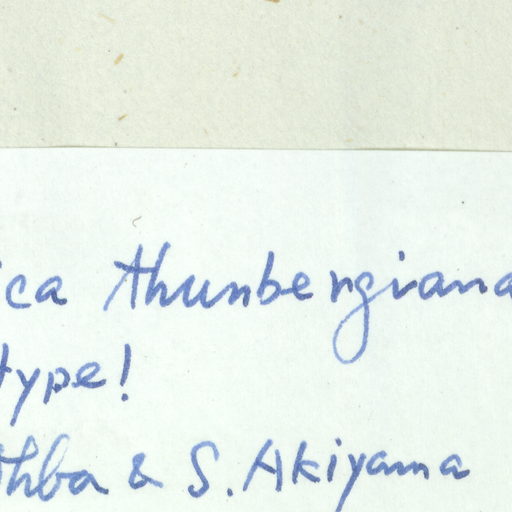 ica thunbergiana
type!
Ohba & S. Akiyama